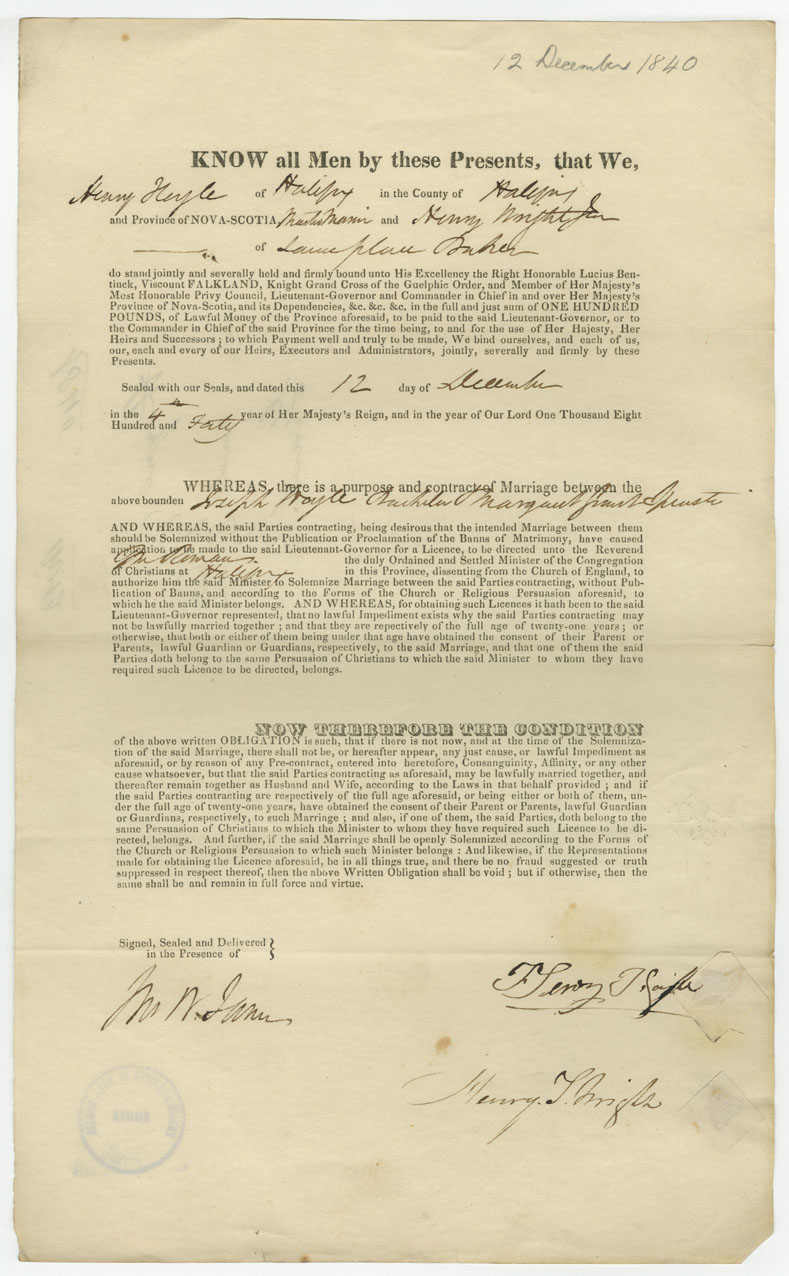 12 December 1840
KNOW all Men by these Presents, that We,
Henry Hoyle of Halifax in the County of Halifax
and Province of NOVA-SCOTIA, Master Marin and Henry Wright Jun
of Same place Baker
do stand jointly and severally held and firmly bound unto His Excellency the Right Honorable Lucius Ben-
tinck, Viscount FALKLAND, Knight Grand Cross of the Guelphic Order, and Member of Her Majesty's
Most Honorable Privy Council, Lieutenant-Governor and Commander in Chief in and over Her Majesty's
Province of Nova-Scotia, and its Dependencies, &c. &c. &c. in the full and just sum of ONE HUNDRED
POUNDS, of Lawful Money of the Province aforesaid, to be paid to the said Lieutenant-Governor, or to
the Commander in Chief of the said Province for the time being, to and for the use of Her Hajesty, Her
Heirs and Successors ; to which Payment well and truly to be made, We bind ourselves, and each of us,
our, each and every of our Heirs, Executors and Administrators, jointly, severally and firmly by these
Presents.
Sealed with our Seals, and dated this 12 day of December
in the 4th year of Her Majesty's Reign, and in the year of Our Lord One Thousand Eight
Hundred and Forty
WHEREAS, there is a purpose and contract of Marriage between the
above bounden Joseph Hoyle Bachelor & Margaret Grant Spinster
AND WHEREAS, the said Parties contracting, being desirous that the intended Marriage between them
should be Solemnized without the Publication or Proclamation of the Banns of Matrimony, have caused
application to be made to the said Lieutenant-Governor for a Licence, to be directed unto the Reverend
the duly Ordained and Settled Minister of the Congregation
of Christians at Halifax in this Province, dissenting from the Church of England, to
authorize him the said Minister to Solemnize Marriage between the said Parties contracting, without Pub-
lication of Banns, and according to the Forms of the Church or Religious Persuasion aforesaid, to
which he the said Minister belongs. AND WHEREAS, for obtaining such Licences it hath been to the said
Lieutenant-Governor represented, that no lawful Impediment exists why the said Parties contracting may
not be lawfully married together ; and that they are repectively of the full age of twenty-one years ; or
otherwise, that both or either of them being under that age have obtained the consent of their Parent or
Parents, lawful Guardian or Guardians, respectively, to the said Marriage, and that one of them the said
Parties doth belong to the same Persuasion of Christians to which the said Minister to whom they have
required such Licence to be directed, belongs.
NOW THEREFORE THE CONDITION
of the above written OBLIGATION is such, that if there is not now, and at the time of the Solemniza-
tion of the said Marriage, there shall not be, or hereafter appear, any just cause, or lawful Impediment as
aforesaid, or by reason of any Pre-contract, entered into heretofore, Consanguinity, Affinity, or any other
cause whatsoever, but that the said Parties contracting as aforesaid, may be lawfully married together, and
thereafter remain together as Husband and Wife, according to the Laws in that behalf provided ; and if
the said Parties contracting are respectively of the full age aforesaid, or being either or both of them, un-
der the full age of twenty-one years, have obtained the consent of their Parent or Parents, lawful Guardian
or Guardians, respectively, to such Marriage ; and also, if one of them, the said Parties, doth belong to the
same Persuasion of Christians to which the Minister to whom they have required such Licence to be di-
rected, belongs. And further, if the said Marriage shall be openly Solemnized according to the Forms of
the Church or Religious Persuasion to which such Minister belongs : And likewise, if the Representations
made for obtaining the Licence aforesaid, be in all things true, and there be no fraud suggested or truth
suppressed in respect thereof, then the above Written Obligation shall be void ; but if otherwise, then the
same shall be and remain in full force and virtue.
Signed, Sealed and Delivered
in the Presence of
Henry Hoyle
Henry. T. Wright